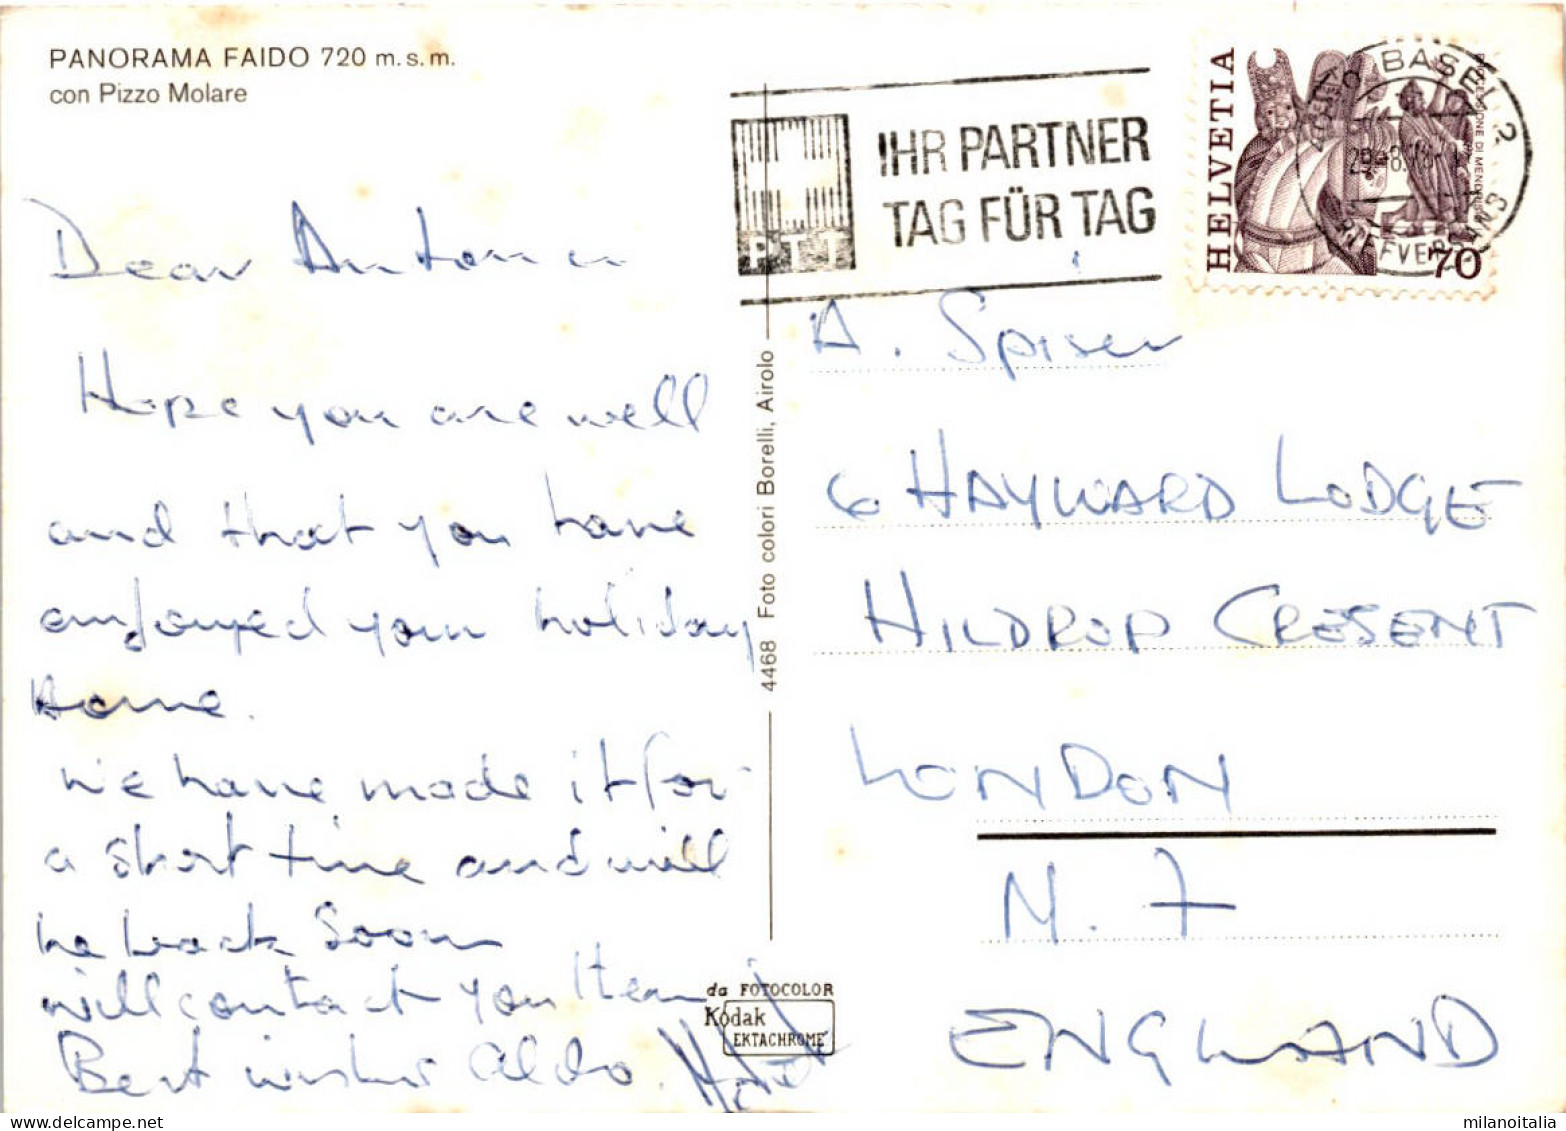 PANORAMA FAIDO 720 m.s.m.
con Pizzo Molare
Dear
Hope you are well
and that you have
your holiday
home.
We have made it for
a short time and will
be back soon
will contact you then
Best wishes Aldo.
4468 Foto colori Borelli, Airolo
da FOTOCOLOR
Kodak
EKTACHROME
PTT
IHR PARTNER
TAG FÜR TAG
HELVETIA
70
BASEL 2
BRIEFVERSAND
A. Spiser
6 HAYWARD LODGE
HILDROP CRESENT
LONDON
N. 7
ENGLAND
milanoitalia